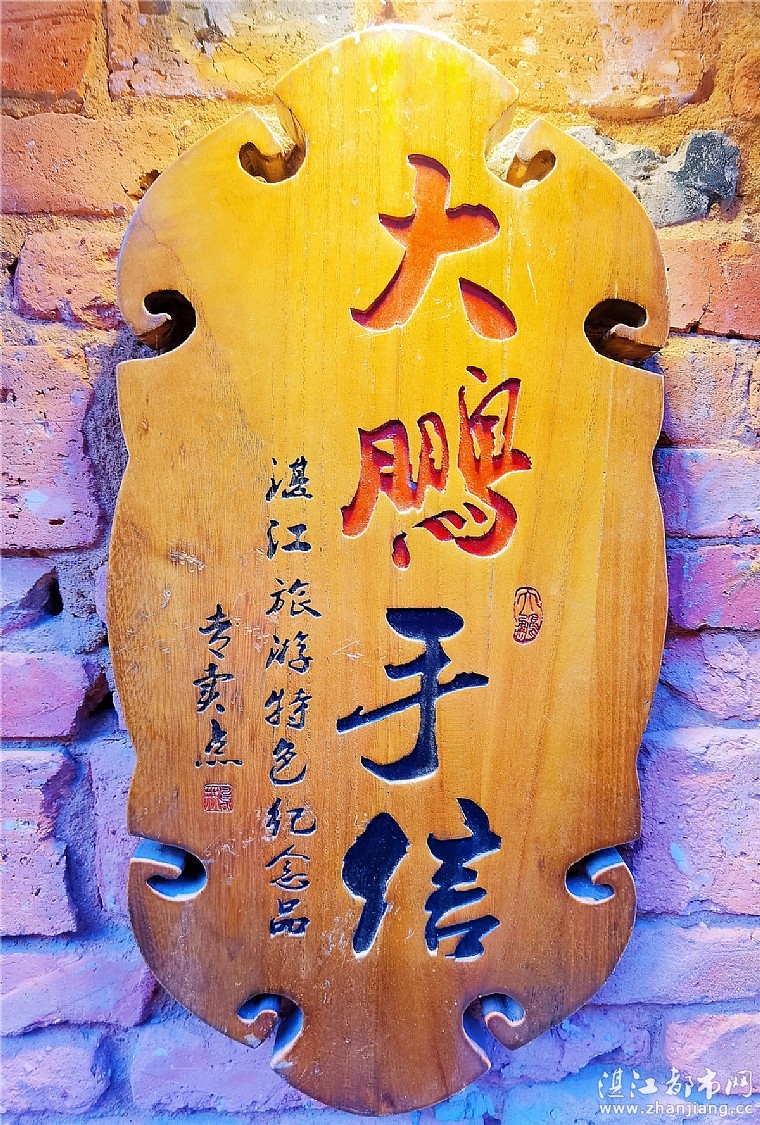 大鹏手信
湛江旅游特色纪念品
专卖点
湛江都市网
www.zhanjiang.cc